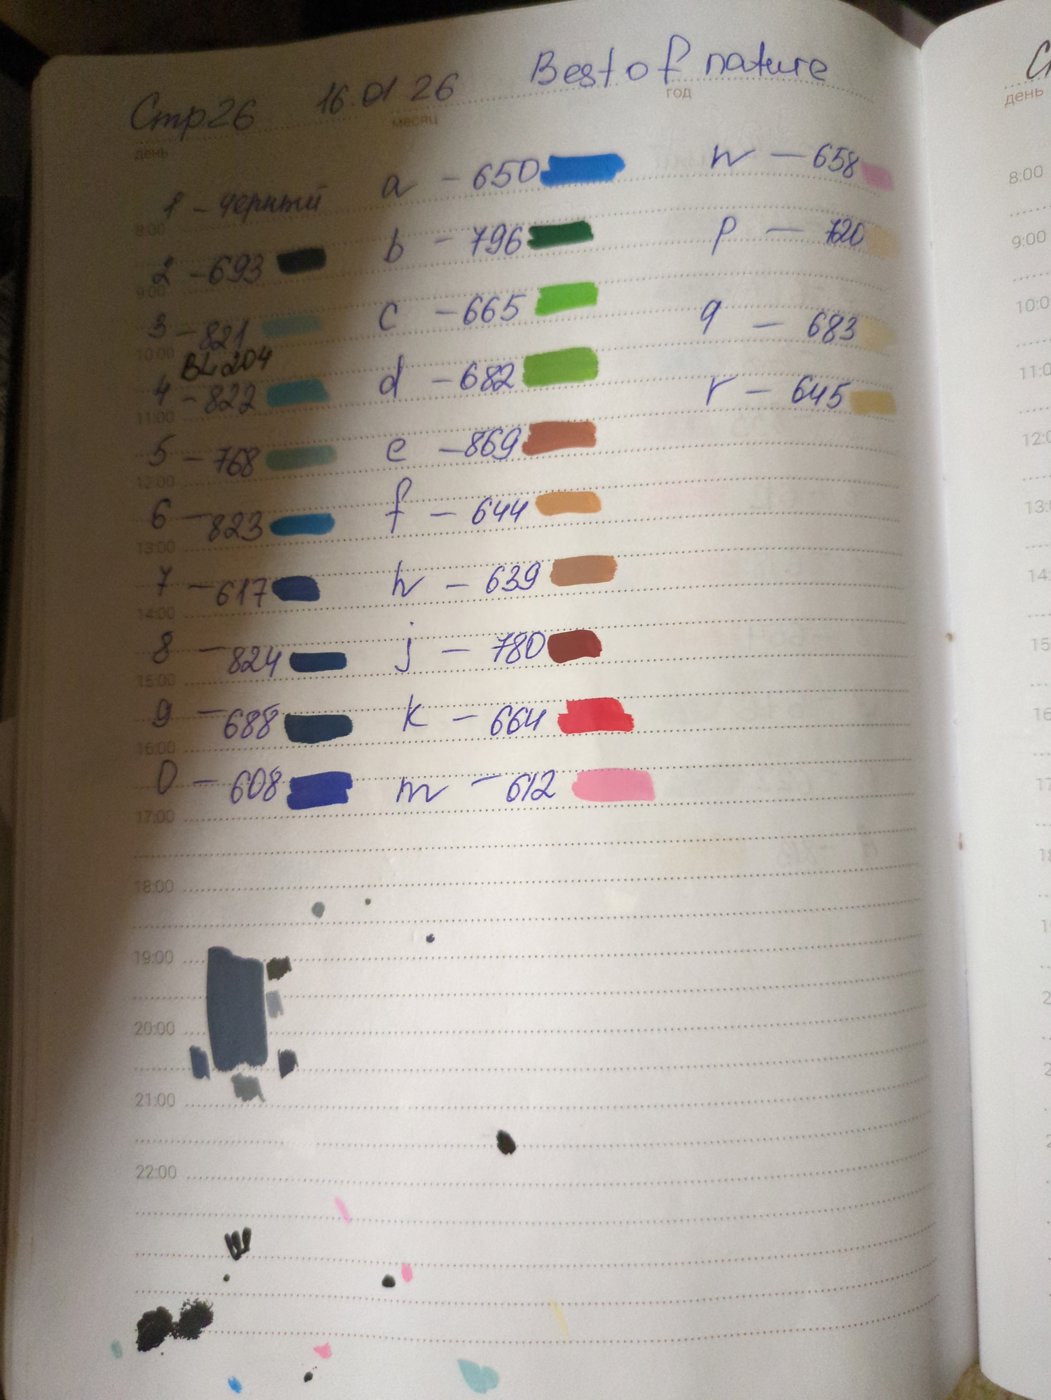 Стр 26 16.01 26 Best of nature
день месяц год
1 - черный
2 - 693
3 - 821
BL 204
4 - 822
5 - 768
6 - 823
7 - 617
8 - 824
9 - 688
0 - 608
a - 650
b - 796
c - 665
d - 682
e - 869
f - 644
h - 639
j - 780
k - 664
m - 612
n - 658
p - 720
q - 683
r - 645
8:00
9:00
10:00
11:00
12:00
13:00
14:00
15:00
16:00
17:00
18:00
19:00
20:00
21:00
22:00
день
8:00
9:00
10:00
11:0
12:0
13:0
14:
15
16
17